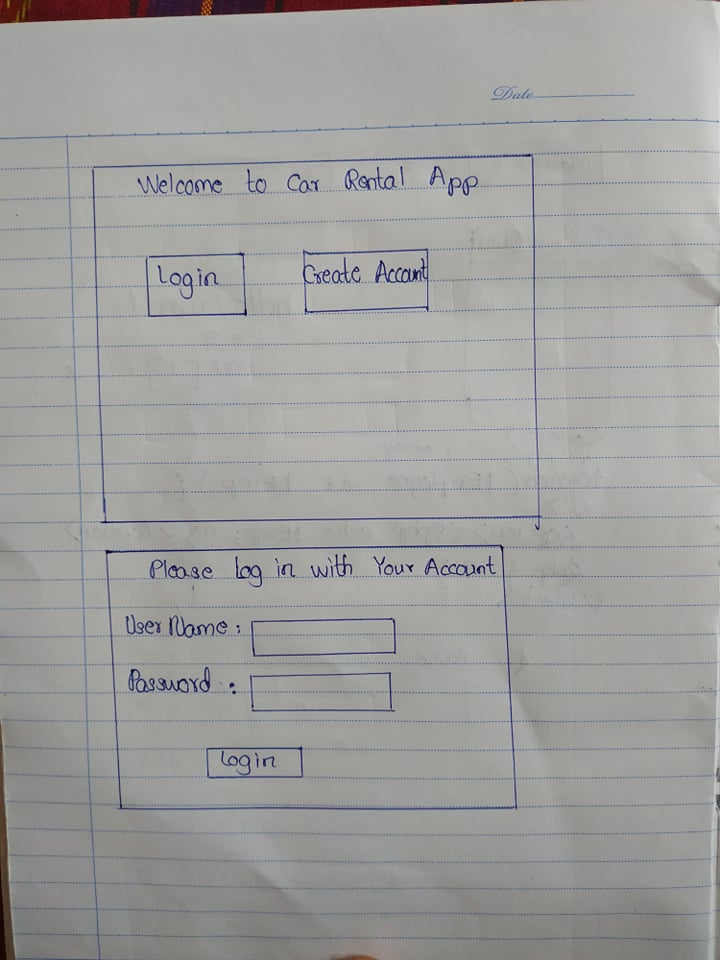 Date
Welcome to Car Rental App
Login
Create Account
Please Log in with Your Account
User Name :
Password :
Login